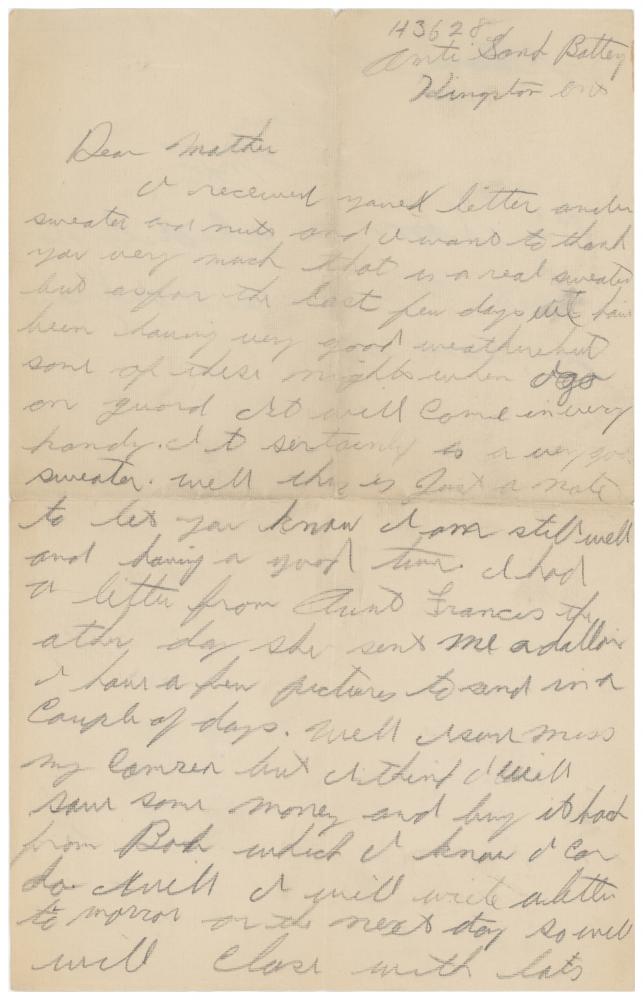 43628
Anti Sand Battey
Kingston Ont
Dear Mother
I received your letter and
sweater and nuts and I want to thank
you very much that is a real sweater
but as for the last few days we have
been having very good weather but
some of these nights when I go
on guard it will come in very
handy. It sertainly is a very good
sweater. well this is just a note
to let you know I am still well
and having a good time. I had
a letter from Aunt Francis the
other day she sent me a dollar
I have a few pictures to send in a
couple of days. Well I sure miss
my camrea but I think I will
save some money and buy it back
from Bob which I know I can
do. Well I will write a letter
to morror or the next day so will
will close with lots